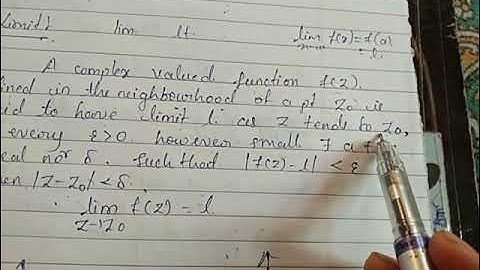 Limit) lim lt. lim f(z) = f(a)
= l.
A complex valued function f(z).
ined in the neighbourhood of a pt z₀ is
id to have limit l. as z tends to z₀,
every ε>0 however small ∃ a
eal no δ. Such that |f(z)-l| < ε
en |z-z₀| < δ.
lim f(z) = l.
z→z₀